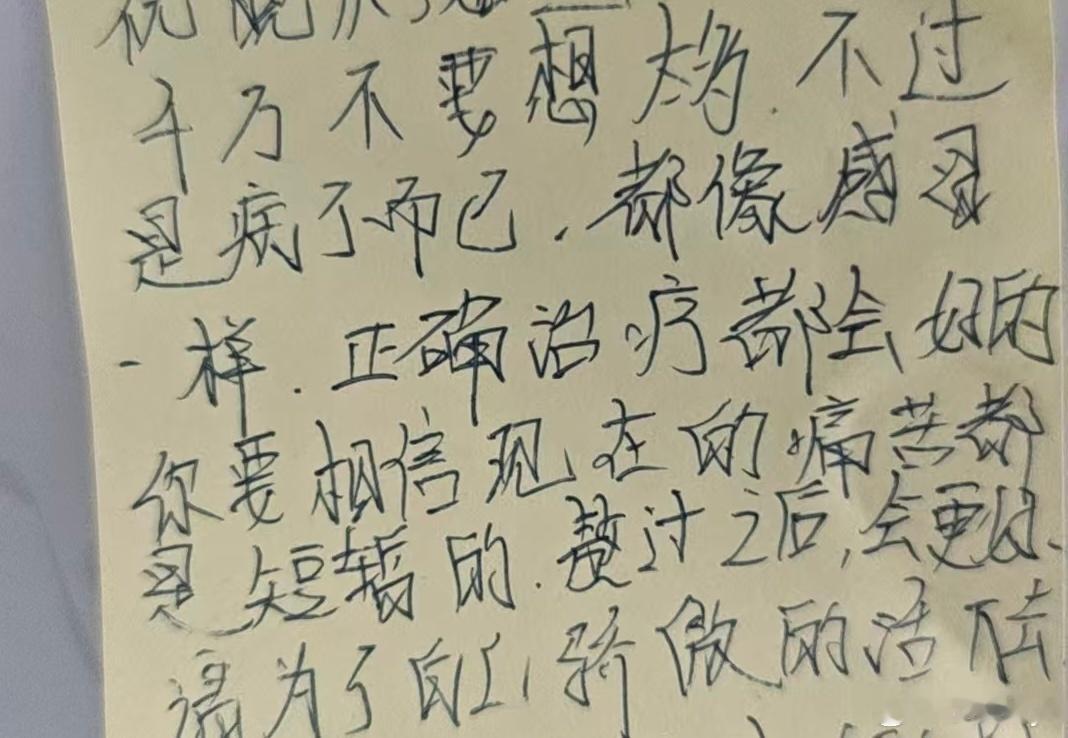 千万不要想太多.不过
是病了而已.都像感冒
一样.正确治疗都会好的
你要相信现在的痛苦都
是短暂的.熬过之后,会更好.
请为了自己,骄傲的活下去